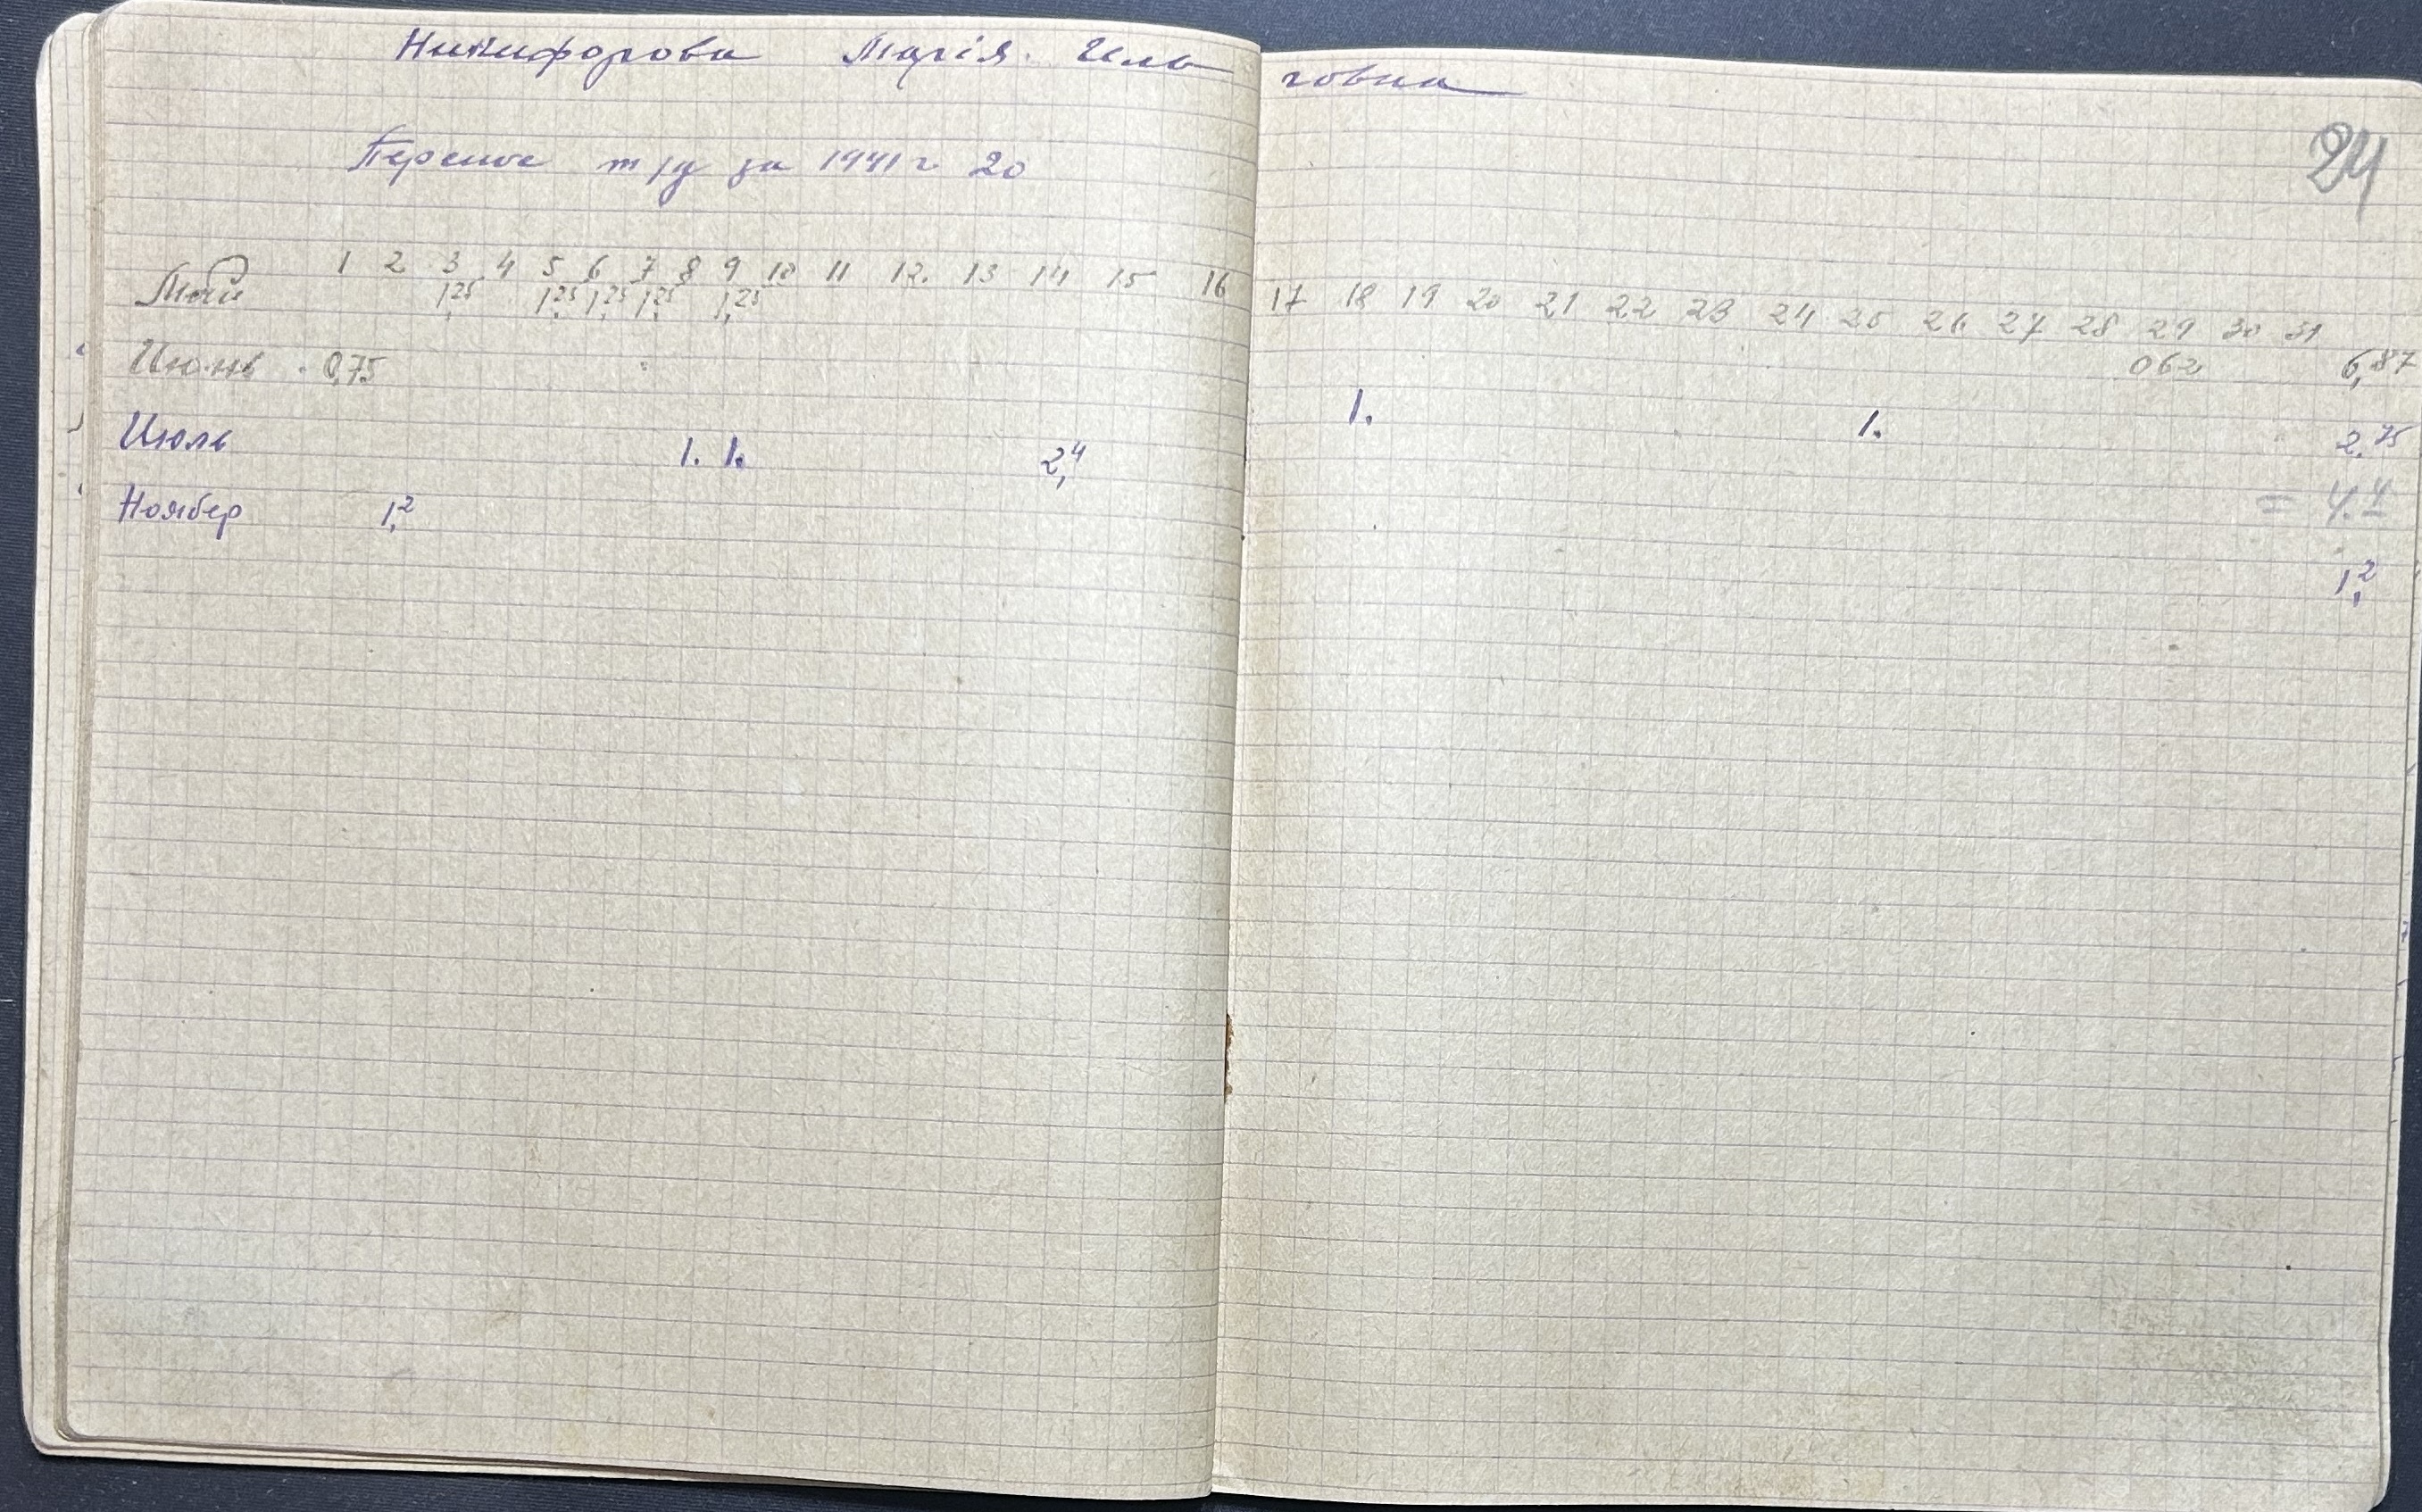 Никифорова Марія.
24
Перенос т/д за 1941 г 20
1 2 3 4 5 6 7 8 9 10 11 12. 13 14 15 16 17 18 19 20 21 22 23 24 25 26 27 28 29 30 31
Май 1,25 1,25 1,25 1,25 1,25 062 6,87
Июнь 0,75 1. 1. 2.75
Июль 1. 1. 2,4 = 4.4
Ноябер 1,2 1,2